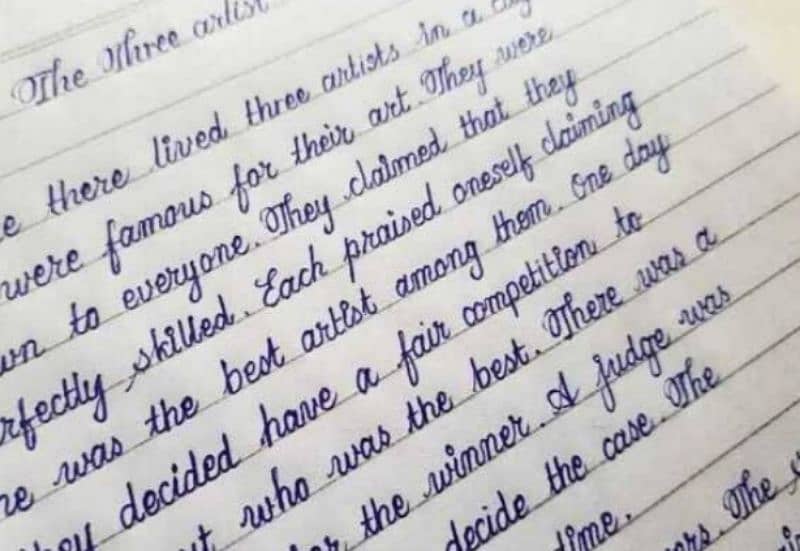 The Three artist
there lived three artists in a
were famous for their art. They were
to everyone. They claimed that they
skilled. Each praised oneself claiming
was the best artist among them. One day
decided have a fair competition to
who was the best. There was a
the winner. A judge was
decide the case. The
time.
The